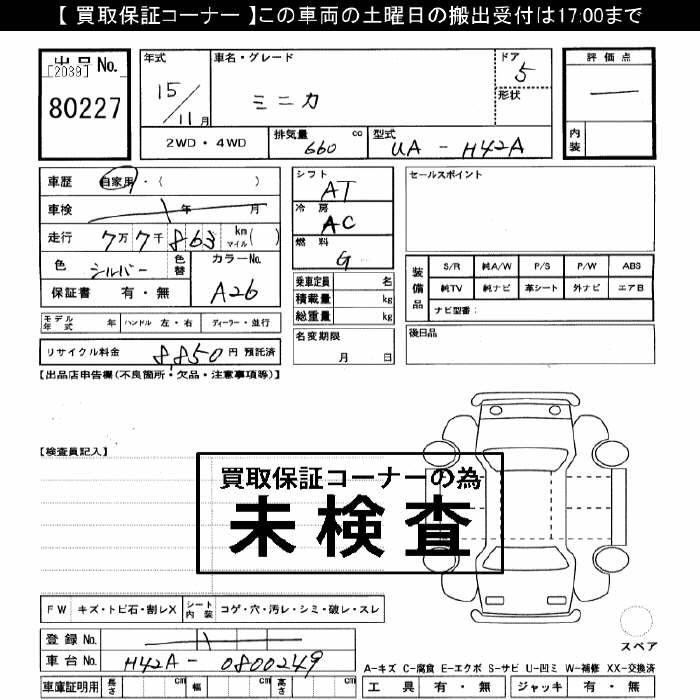 【 買取保証コーナー 】この車両の土曜日の搬出受付は17:00まで
出品 No.
[2039]
80227
年式
15/11月
車名・グレード
ミニカ
ドア
5
形状
評価点
―
内装
2WD・4WD
排気量 660 cc
型式 UA - H42A
車歴 自家用・( )
車検 年 月
走行 7万7千863 km マイル( )
色 シルバー 色替
カラーNo. A26
保証書 有・無
シフト AT
冷房 AC
燃料 G
乗車定員 名
積載量 kg
総重量 kg
名変期限
月 日
セールスポイント
装備品
S/R 純A/W P/S P/W ABS
純TV 純ナビ 革シート 外ナビ エアB
ナビ型番:
後日品
モデル年式 年 ハンドル 左・右 ディーラー・並行
リサイクル料金 8,850 円 預託済
【出品店申告欄(不良箇所・欠品・注意事項等)】
【検査員記入】
買取保証コーナーの為
未検査
FW キズ・トビ石・割レX シート内装 コゲ・穴・汚レ・シミ・破レ・スレ
登録 No.
車台 No. H42A - 0800249
車庫証明用 長さ cm 幅 cm 高さ cm
スペア
A-キズ C-腐食 E-エクボ S-サビ U-凹ミ W-補修 XX-交換済
工具 有・無 ジャッキ 有・無